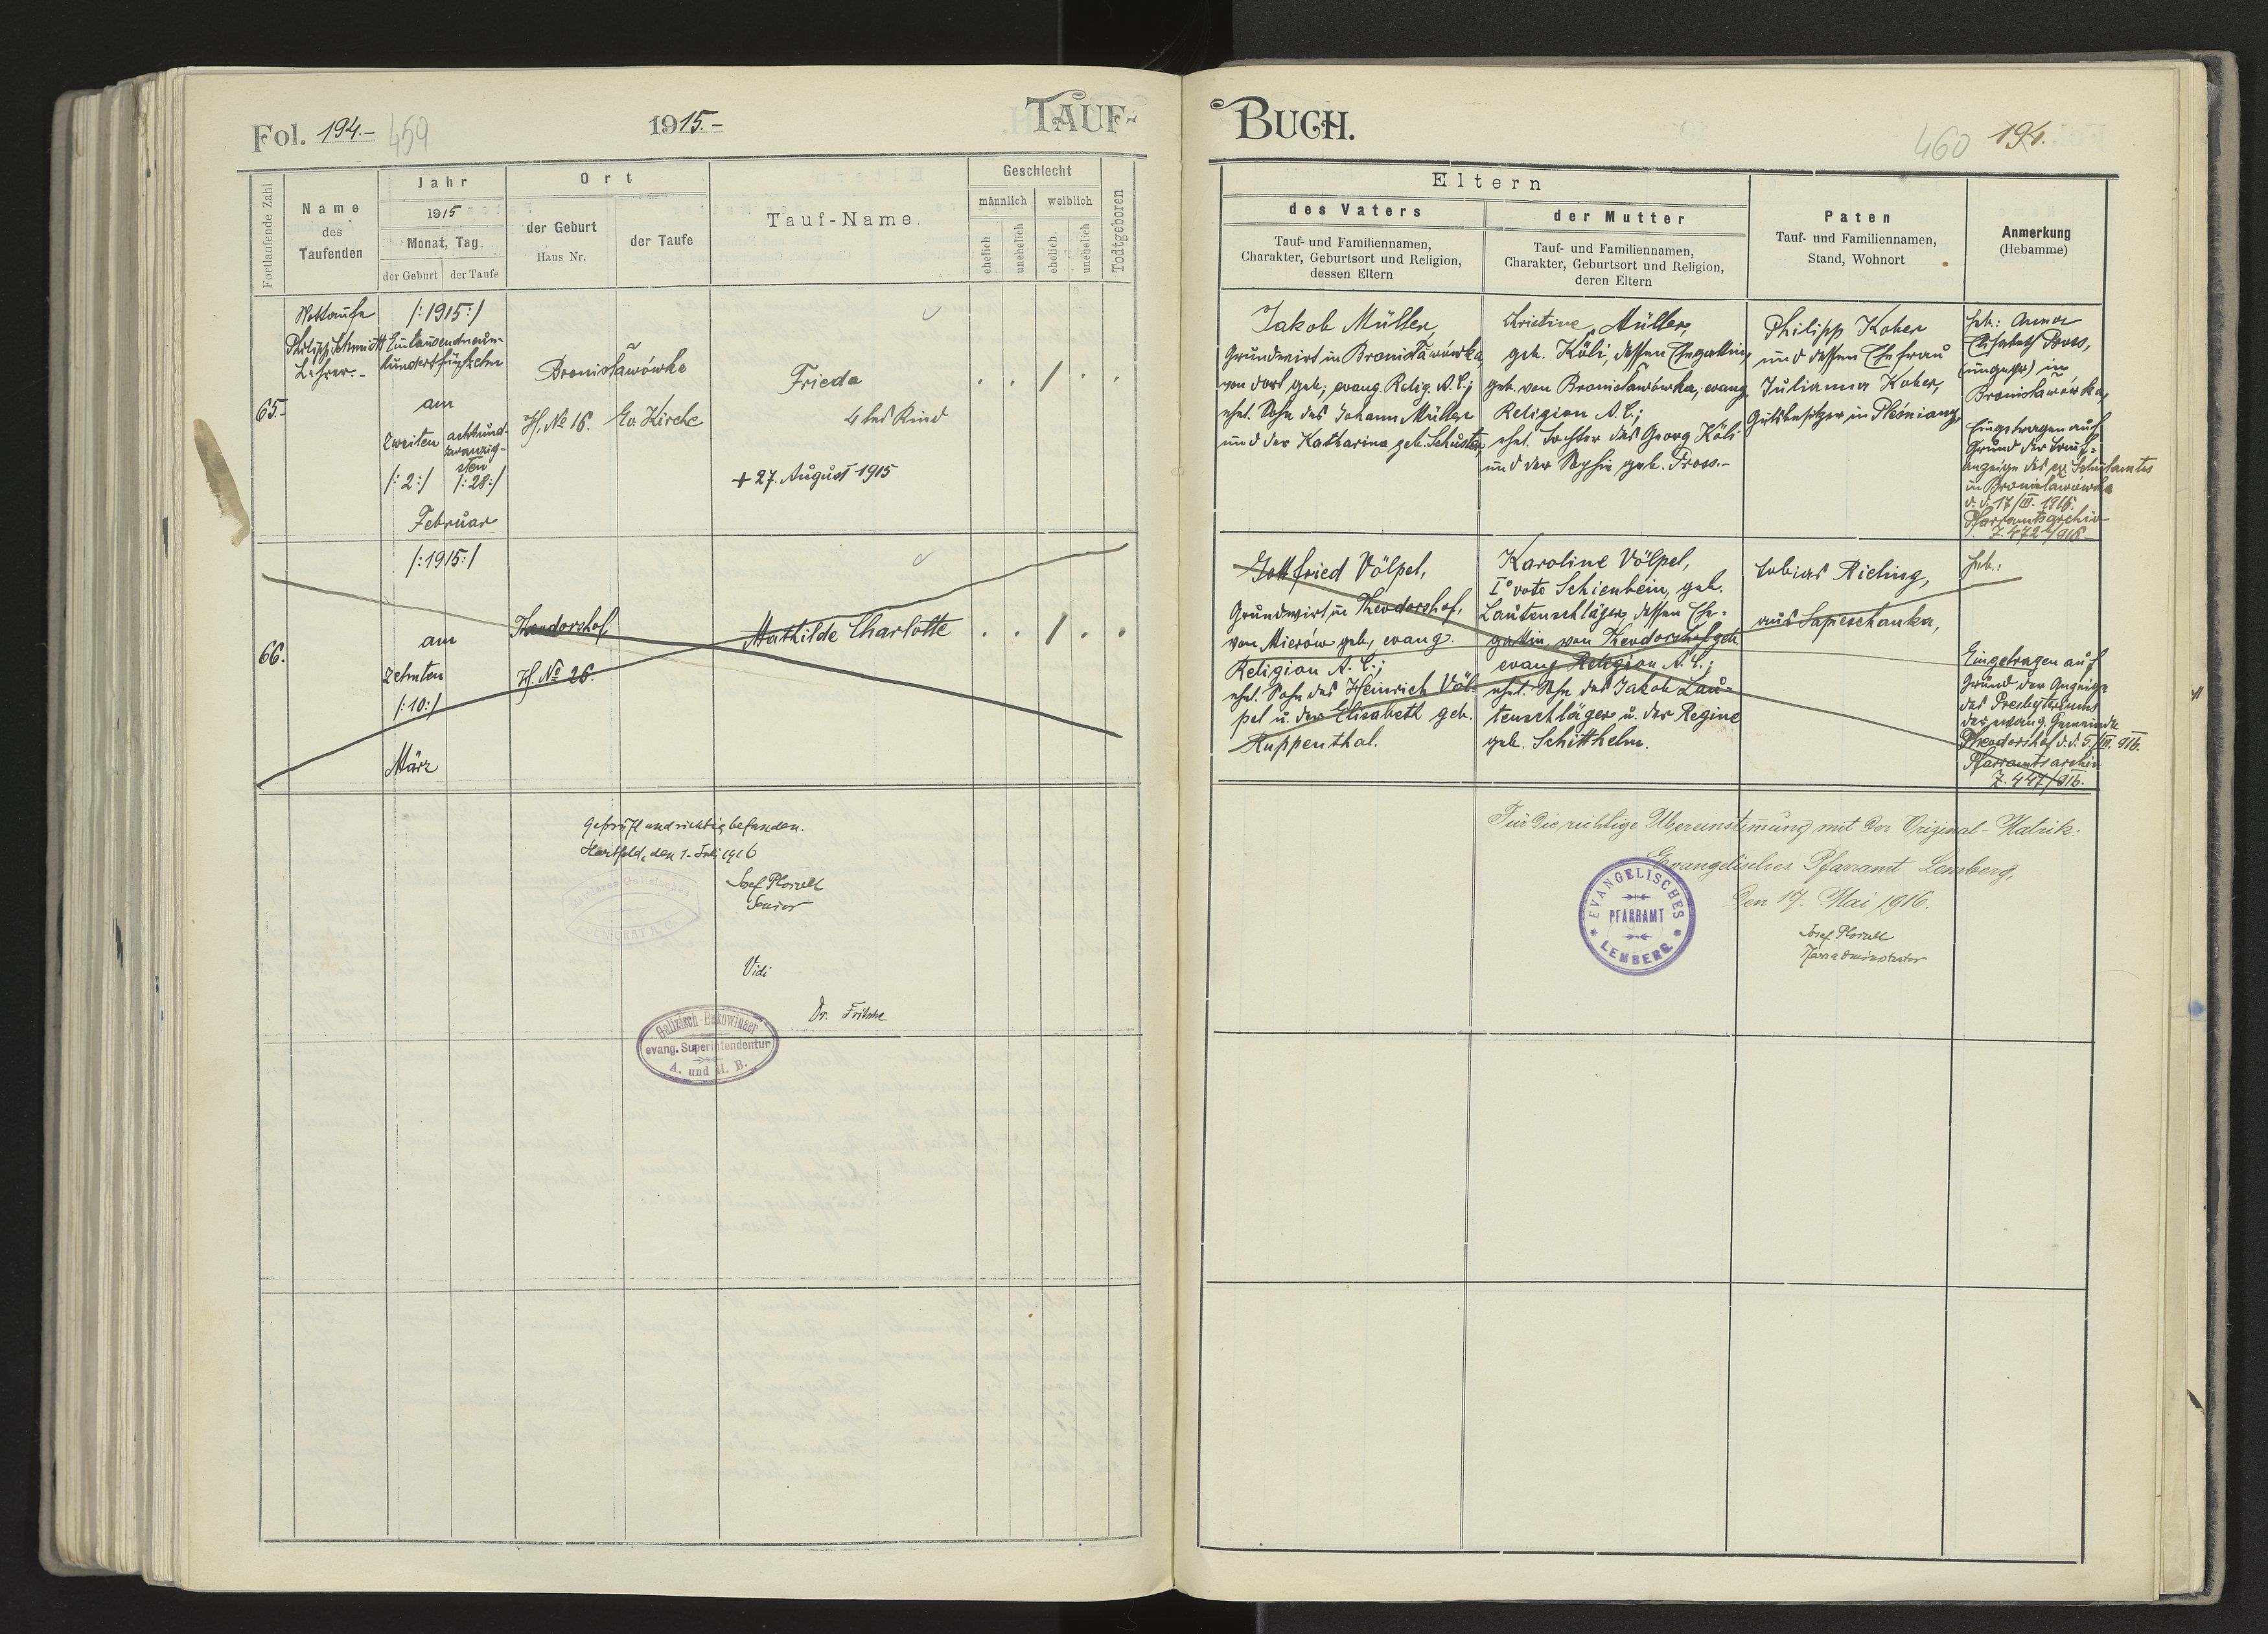 Fol. 194.- 459
1915.-
TAUF-
Fortlaufende Zahl
Name
des
Taufenden
Jahr
1915
Monat, Tag
der Geburt
der Taufe
Ort
der Geburt
Haus Nr.
der Taufe
Tauf-Name
Geschlecht
männlich
weiblich
ehelich
unehelich
ehelich
unehelich
Todtgeboren
65.-
Nottaufe
Philipp Schmidt
Lehrer.-
/:1915:/
Eintausendneun-
hundertfünfzehn
am
zweiten
/:2:/
achtund-
zwanzig-
sten
/:28:/
Februar
Bronisławówka
H. № 16.
Ev. Kirche
Frieda
4tes Kind
+ 27. August 1915
66.
/:1915:/
am
zehnten
/:10:/
März
Theodorshof,
H. № 26.
Mathilde Charlotte
Geprüft und richtig befunden.
Hartfeld, den 1. Juli 1916
Senior
SENIORAT A. C.
Vidi
Dr. Fritsche
Galizisch-Bukowinaer
evang. Superintendentur
A. und H. B.
BUCH.
460 194.
Eltern
des Vaters
Tauf- und Familiennamen,
Charakter, Geburtsort und Religion,
dessen Eltern
der Mutter
Tauf- und Familiennamen,
Charakter, Geburtsort und Religion,
deren Eltern
Paten
Tauf- und Familiennamen,
Stand, Wohnort
Anmerkung
(Hebamme)
Jakob Müller,
Grundwirt in Bronisławówka,
von dort geb; evang. Relig. A. C.;
ehel. Sohn des Johann Müller
und der Katharina geb. Schuster,
Christine Müller,
geb. Köli, dessen Ehegattin,
geb. von Bronisławówka, evang.
Religion A. C.;
ehel. Tochter des Georg Köli
und der Sophie geb. Pross.-
Philipp Koher
und dessen Ehefrau
Julianna Koher,
Gutsbesitzer in Pleśniany,
Heb.: Anna
Elisabeth Pross,
(ungepr.) in
Bronisławówka,
Eingetragen auf
Grund der Tauf-
anzeige des ev. Schulamtes
in Bronisławówka
d. d. 17/III. 1916.
Pfarramtsarchiv
Z. 472/916-
Gottfried Völpel,
Grundwirt in Theodorshof,
von Mierów geb, evang.
Religion A. C.;
ehel. Sohn des Heinrich Völ-
pel u. der Elisabeth geb.
Ruppenthal.
Karoline Völpel,
I° voto Schienbein, geb.
Lautenschläger, dessen Ehe-
gattin, von Theodorshof geb.
evang. Religion A. C.;
ehel. Sohn des Jakob Lau-
tenschläger u. der Regine
geb. Schitthelm.
Tobias Rieling,
aus Sapieschanka,
Heb.:
Eingetragen auf
Grund der Anzeige
des Presbyteriums
der evang. Gemeinde
Theodorshof d. d. 5./III. 916.
Pfarramtsarchiv
Z. 447/916.
Für die richtige Übereinstimmung mit der Original-Matrik:
Evangelisches Pfarramt Lemberg,
den 17. Mai 1916.
Pfarradministrator
EVANGELISCHES
PFARRAMT
LEMBERG